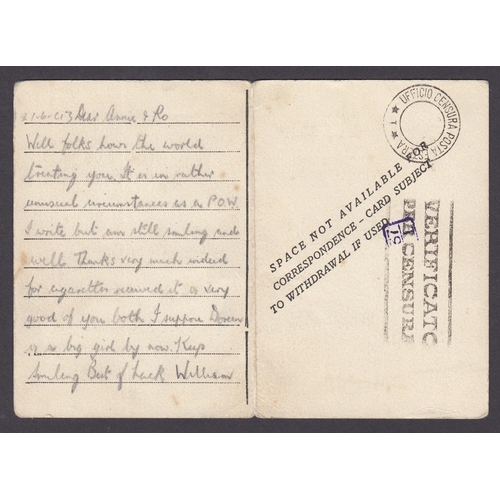 Dear Annie & Ro
Well folks hows the world
treating you. It is in rather
unusual circumstances as a P.O.W.
I write but am still smiling and
well thanks very much indeed
for cigarettes received it is very
good of you both I suppose Doreen
is a big girl by now. Keep
smiling Best of Luck William
SPACE NOT AVAILABLE FOR
CORRESPONDENCE - CARD SUBJECT
TO WITHDRAWAL IF USED
UFFICIO CENSURA POSTA
VERIFICATO
PER CENSURA